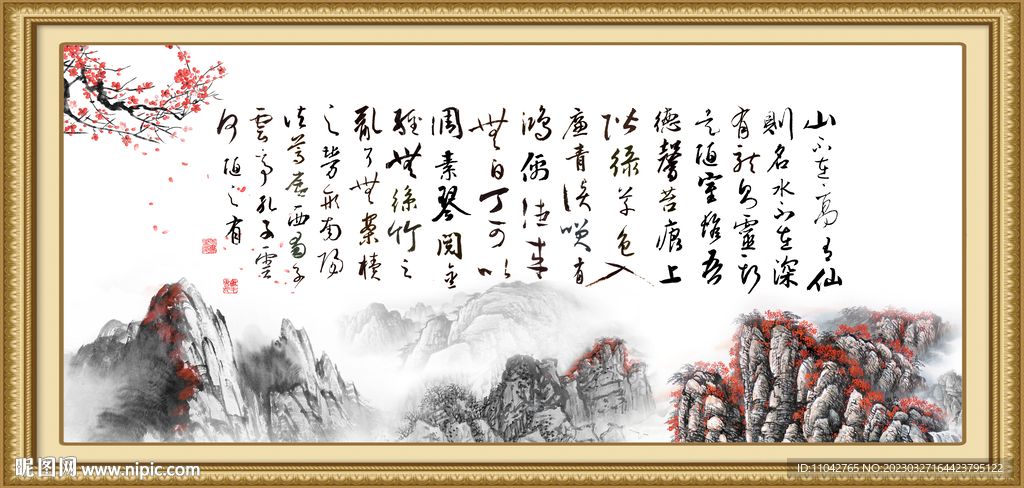 山不在高有仙
則名水不在深
有龍則靈斯
是陋室惟吾
德馨苔痕上
階綠草色入
廉青談笑有
鴻儒往來
無白丁可以
調素琴閱金
經無絲竹之
亂耳無案牘
之勞形南陽
諸葛廬西蜀子
雲亭孔子雲
何陋之有
昵图网 www.nipic.com
ID:11042765 NO:20230327164423795122